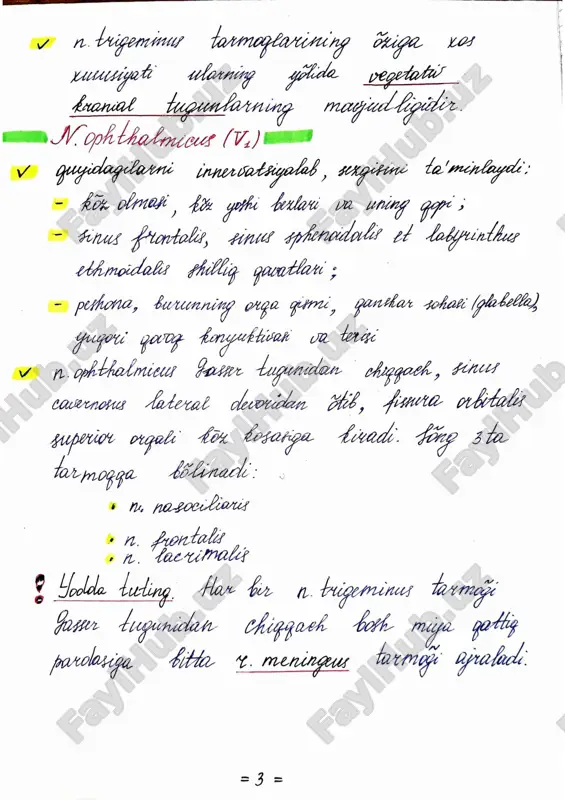 ✓ n. trigeminus tarmoqlarining õziga xos
xususiyati ularning yõlida vegetativ
kranial tugunlarning mavjudligidir.
N. ophthalmicus (V₁)
✓ quyidagilarni innervatsiyalab, sezgisini ta'minlaydi:
- kõz olmasi, kõz yoshi bezlari va uning qopi;
- sinus frontalis, sinus sphenoidalis et labyrinthus
ethmoidalis shilliq qavatlari;
- peshona, burunning orqa qismi, qanshar sohasi (glabella),
yuqori qovoq konyuktivasi va terisi
✓ n. ophthalmicus Gasser tugunidan chiqqach, sinus
cavernosus lateral devoridan õtib, fissura orbitalis
superior orqali kõz kosasiga kiradi. Sõng 3 ta
tarmoqqa bõlinadi:
• n. nasociliaris
• n. frontalis
• n. lacrimalis
! Yodda tuting. Har bir n. trigeminus tarmoği
Gasser tugunidan chiqqach bosh miya qattiq
pardasiga bitta r. meningeus tarmoği ajraladi.
= 3 =
FayIHub.uz